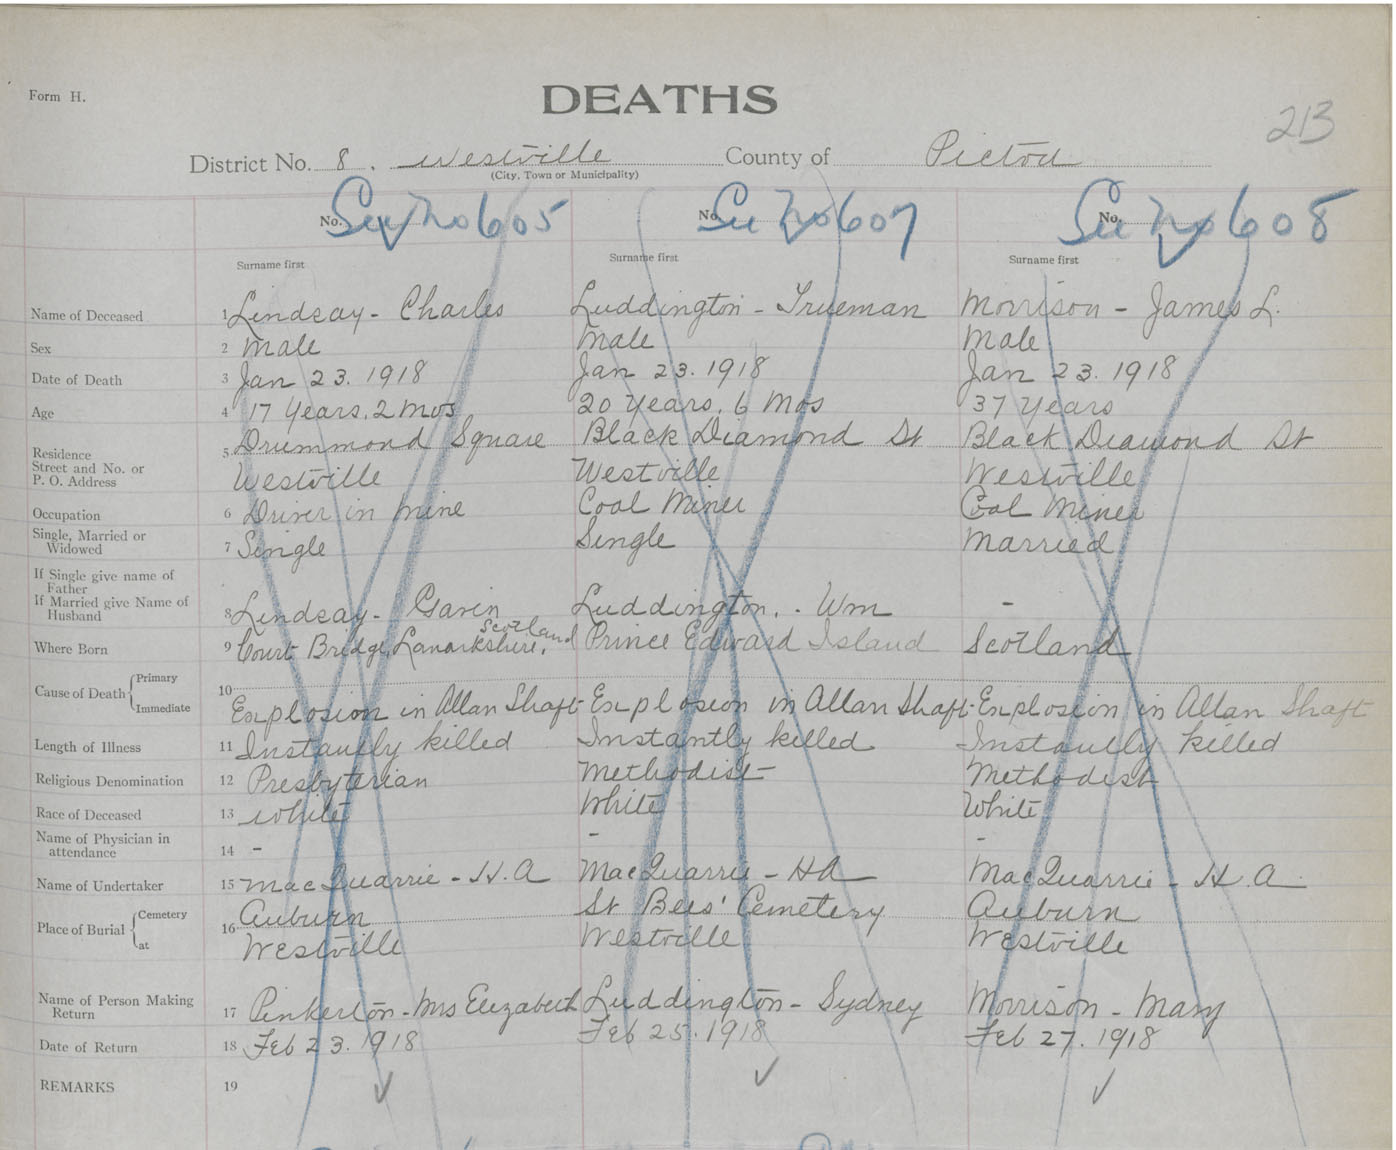 Form H.
DEATHS
213
District No. 8. Westville County of Pictou
(City, Town or Municipality)
No. See No 605 No. See No 607 No. See No 608
Surname first Surname first Surname first
Name of Deceased 1 Lindsay - Charles Luddington - Trueman Morrison - James L.
Sex 2 Male Male Male
Date of Death 3 Jan 23. 1918 Jan 23. 1918 Jan 23. 1918
Age 4 17 Years. 2 Mos 20 Years. 6 Mos 37 Years
Residence Street and No. or P. O. Address 5 Drummond Square Black Diamond St Black Diamond St
Westville Westville Westville
Occupation 6 Driver in mine Coal Miner Coal Miner
Single, Married or Widowed 7 Single Single Married
If Single give name of Father
If Married give Name of Husband 8 Lindsay - Gavin Luddington. - Wm -
Where Born 9 Court Bridge, Lanarkshire, Scotland Prince Edward Island Scotland
Cause of Death Primary 10
Immediate Explosion in Allan Shaft Explosion in Allan Shaft Explosion in Allan Shaft
Length of Illness 11 Instantly killed Instantly killed Instantly killed
Religious Denomination 12 Presbyterian Methodist Methodist
Race of Deceased 13 White White White
Name of Physician in attendance 14 - - -
Name of Undertaker 15 MacQuarrie - H. A MacQuarrie - HA MacQuarrie - H. A.
Place of Burial Cemetery 16 Auburn St Bees' Cemetery Auburn
at Westville Westville Westville
Name of Person Making Return 17 Pinkerton - Mrs Elizabeth Luddington - Sydney Morrison - Mary
Date of Return 18 Feb 23. 1918 Feb 25. 1918 Feb 27. 1918
REMARKS 19